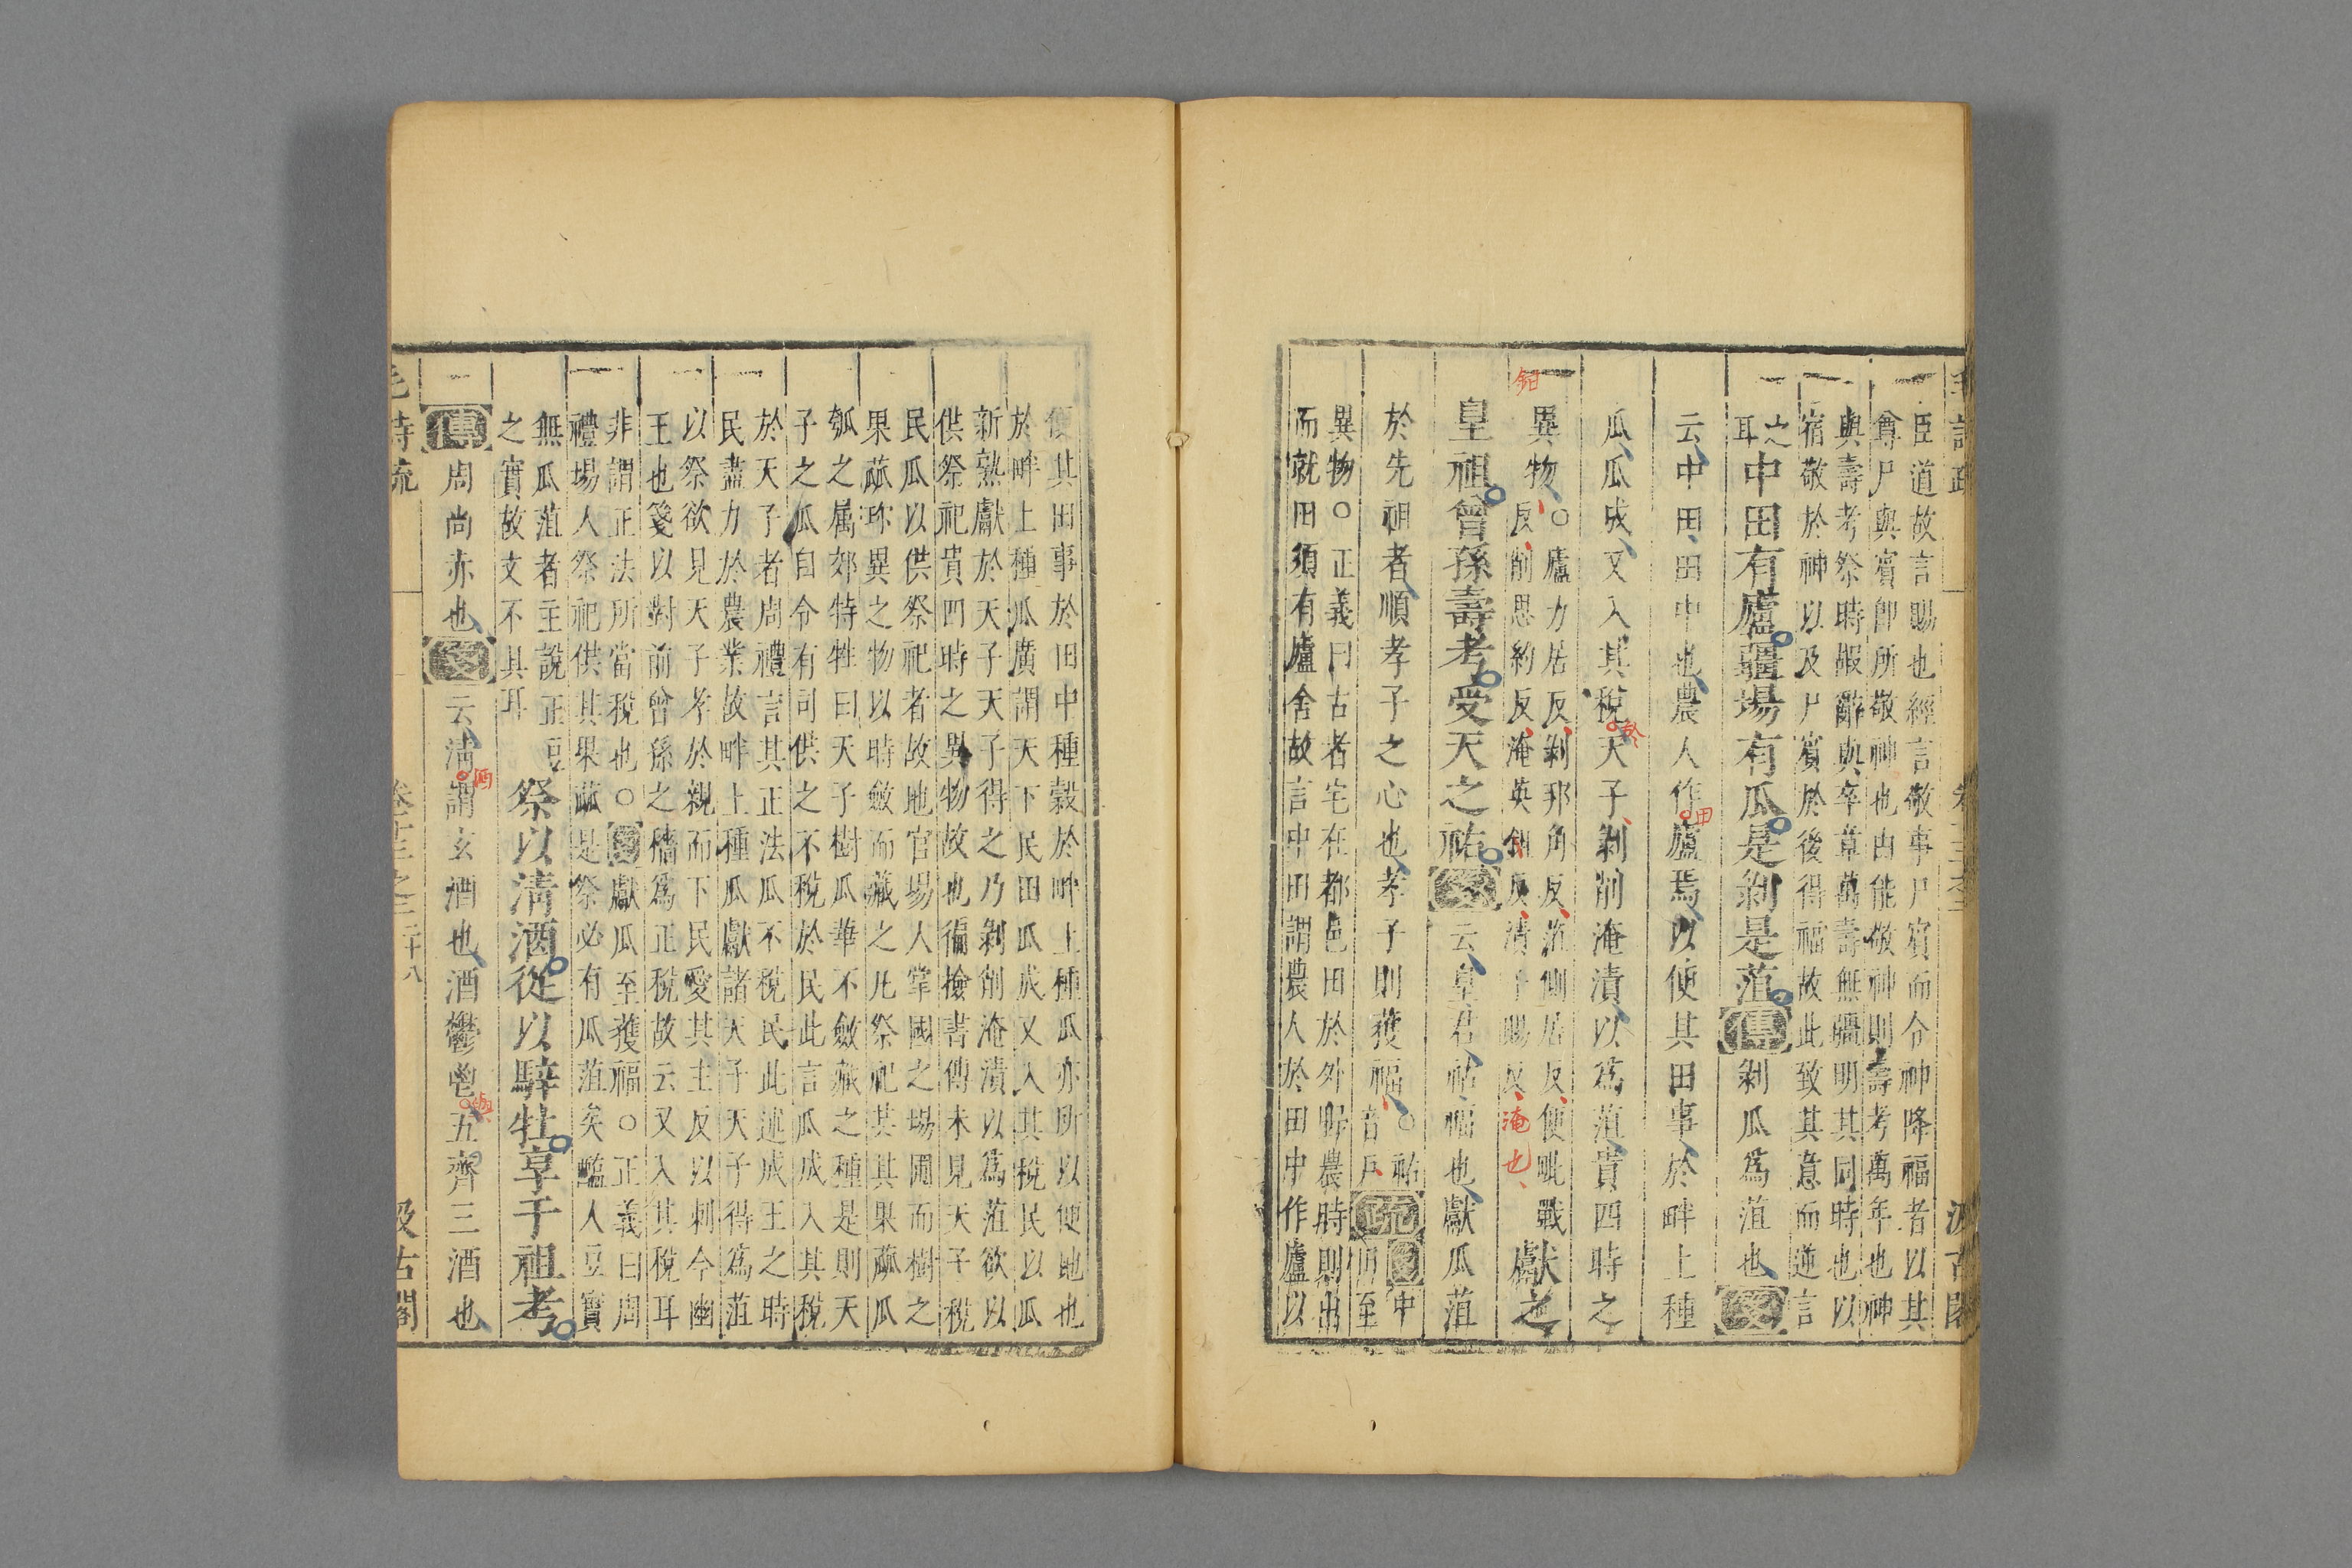 毛詩疏
卷十三之二
汲古閣
臣道故言賜也經言敬事尸賓而令神降福者以其
尊尸與賓卽所敬神也由能敬神則壽考萬年也神
與壽考祭時嘏辭與卒章萬壽無疆明其同時也以
宿敬於神以及尸賓於後得福故此致其意而逆言
之
耳
中田有廬疆場有瓜是剝是菹傳剝瓜爲菹也箋
云中田田中也農人作廬焉以便其田事於畔上種
田
瓜瓜成又入其稅天子剝削淹漬以爲菹貴四時之
於
異物○廬力居反剝邦角反菹側居反便毗戰
反削思約反淹英鉗反漬子賜反淹也
鉗
獻之
皇祖曾孫壽考受天之祜箋云皇君祜福也獻瓜菹
於先祖者順孝子之心也孝子則獲福○祜
音戶
疏箋中
田至
異物○正義曰古者宅在都邑田於外野農時則出
而就田須有廬舍故言中田謂農人於田中作廬以
便其田事於田中種穀於畔上種瓜亦所以便地也
於畔上種瓜廣謂天下民田瓜成又入其稅民以瓜
新熟獻於天子天子得之乃剝削淹漬以爲菹欲以
供祭祀貴四時之異物故也徧撿書傳未見天子稅
民瓜以供祭祀者故地官場人掌國之場圃而樹之
果蓏珎異之物以時斂而藏之凡祭祀共其果蓏瓜
瓠之属郊特牲曰天子樹瓜華不斂藏之種是則天
子之瓜自令有司供之不稅於民此言瓜成入其稅
於天子者周禮言其正法瓜不稅民此述成王之時
民盡力於農業故畔上種瓜獻諸天子天子得爲菹
以祭欲見天子孝於親而下民愛其主反以刺今幽
王也箋以對前曾孫之穡爲正稅故云又入其稅耳
非謂正法所當稅也○箋獻瓜至獲福○正義曰周
禮場人祭祀供其果蓏是祭必有瓜菹矣醢人豆實
無瓜菹者主說正豆
之實故文不具耳
祭以清酒從以騂牡享于祖考
傳周尚赤也箋云清謂玄酒也酒鬱鬯五齊三酒也
酒
毛詩疏
卷十三之二
十八
汲古閣